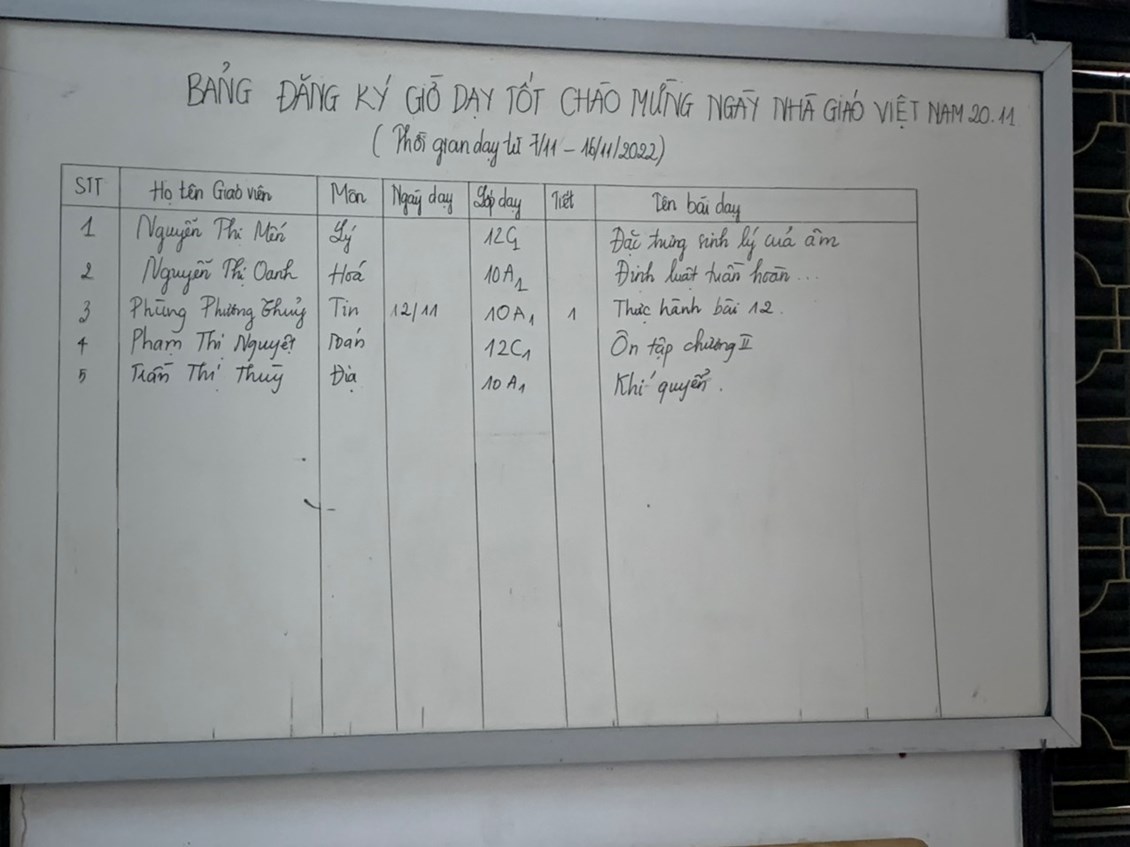 BẢNG ĐĂNG KÝ GIỜ DẠY TỐT CHÀO MỪNG NGÀY NHÀ GIÁO VIỆT NAM 20.11
(Thời gian dạy từ 7/11 - 16/11/2022)
STT Họ tên Giáo viên Môn Ngày dạy Lớp dạy Tiết Tên bài dạy
1 Nguyễn Thị Mến Lý 12C1 Đặc trưng sinh lý của âm
2 Nguyễn Thị Oanh Hoá 10A1 Định luật tuần hoàn...
3 Phùng Phương Thuỷ Tin 12/11 10A1 1 Thực hành bài 12.
4 Phạm Thị Nguyệt Toán 12C1 Ôn tập chương II
5 Trần Thị Thuỳ Địa 10A1 Khí quyển.